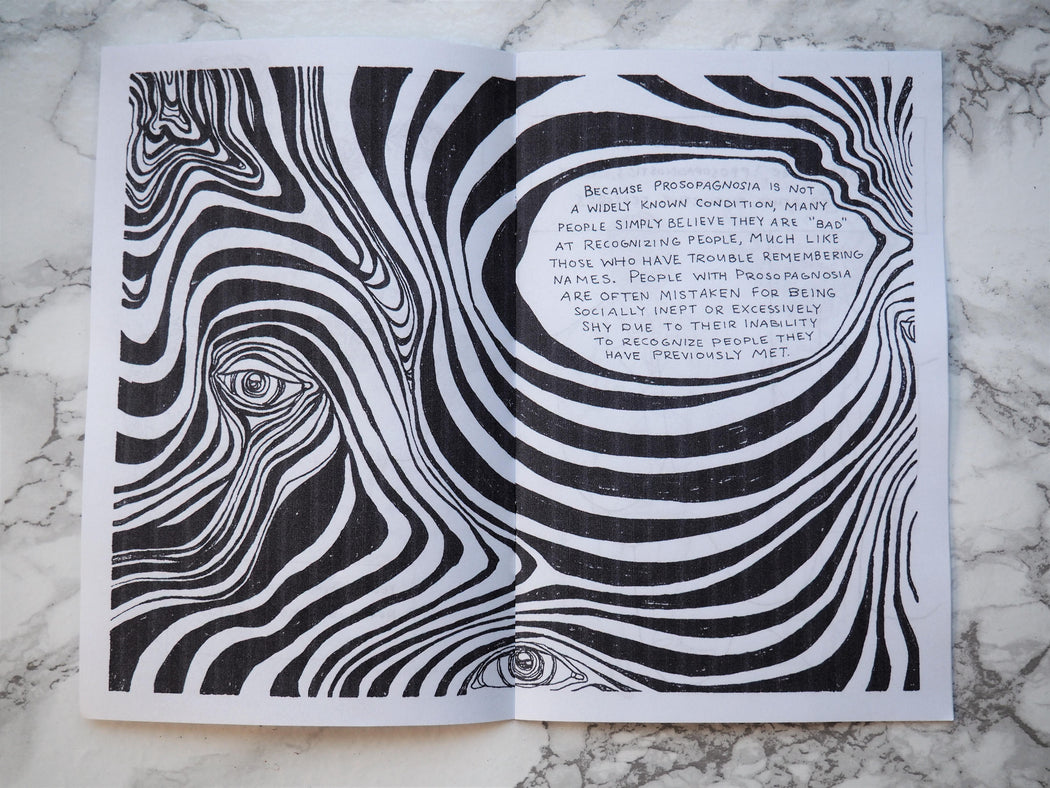 BECAUSE PROSOPAGNOSIA IS NOT
A WIDELY KNOWN CONDITION, MANY
PEOPLE SIMPLY BELIEVE THEY ARE "BAD"
AT RECOGNIZING PEOPLE, MUCH LIKE
THOSE WHO HAVE TROUBLE REMEMBERING
NAMES. PEOPLE WITH PROSOPAGNOSIA
ARE OFTEN MISTAKEN FOR BEING
SOCIALLY INEPT OR EXCESSIVELY
SHY DUE TO THEIR INABILITY
TO RECOGNIZE PEOPLE THEY
HAVE PREVIOUSLY MET.